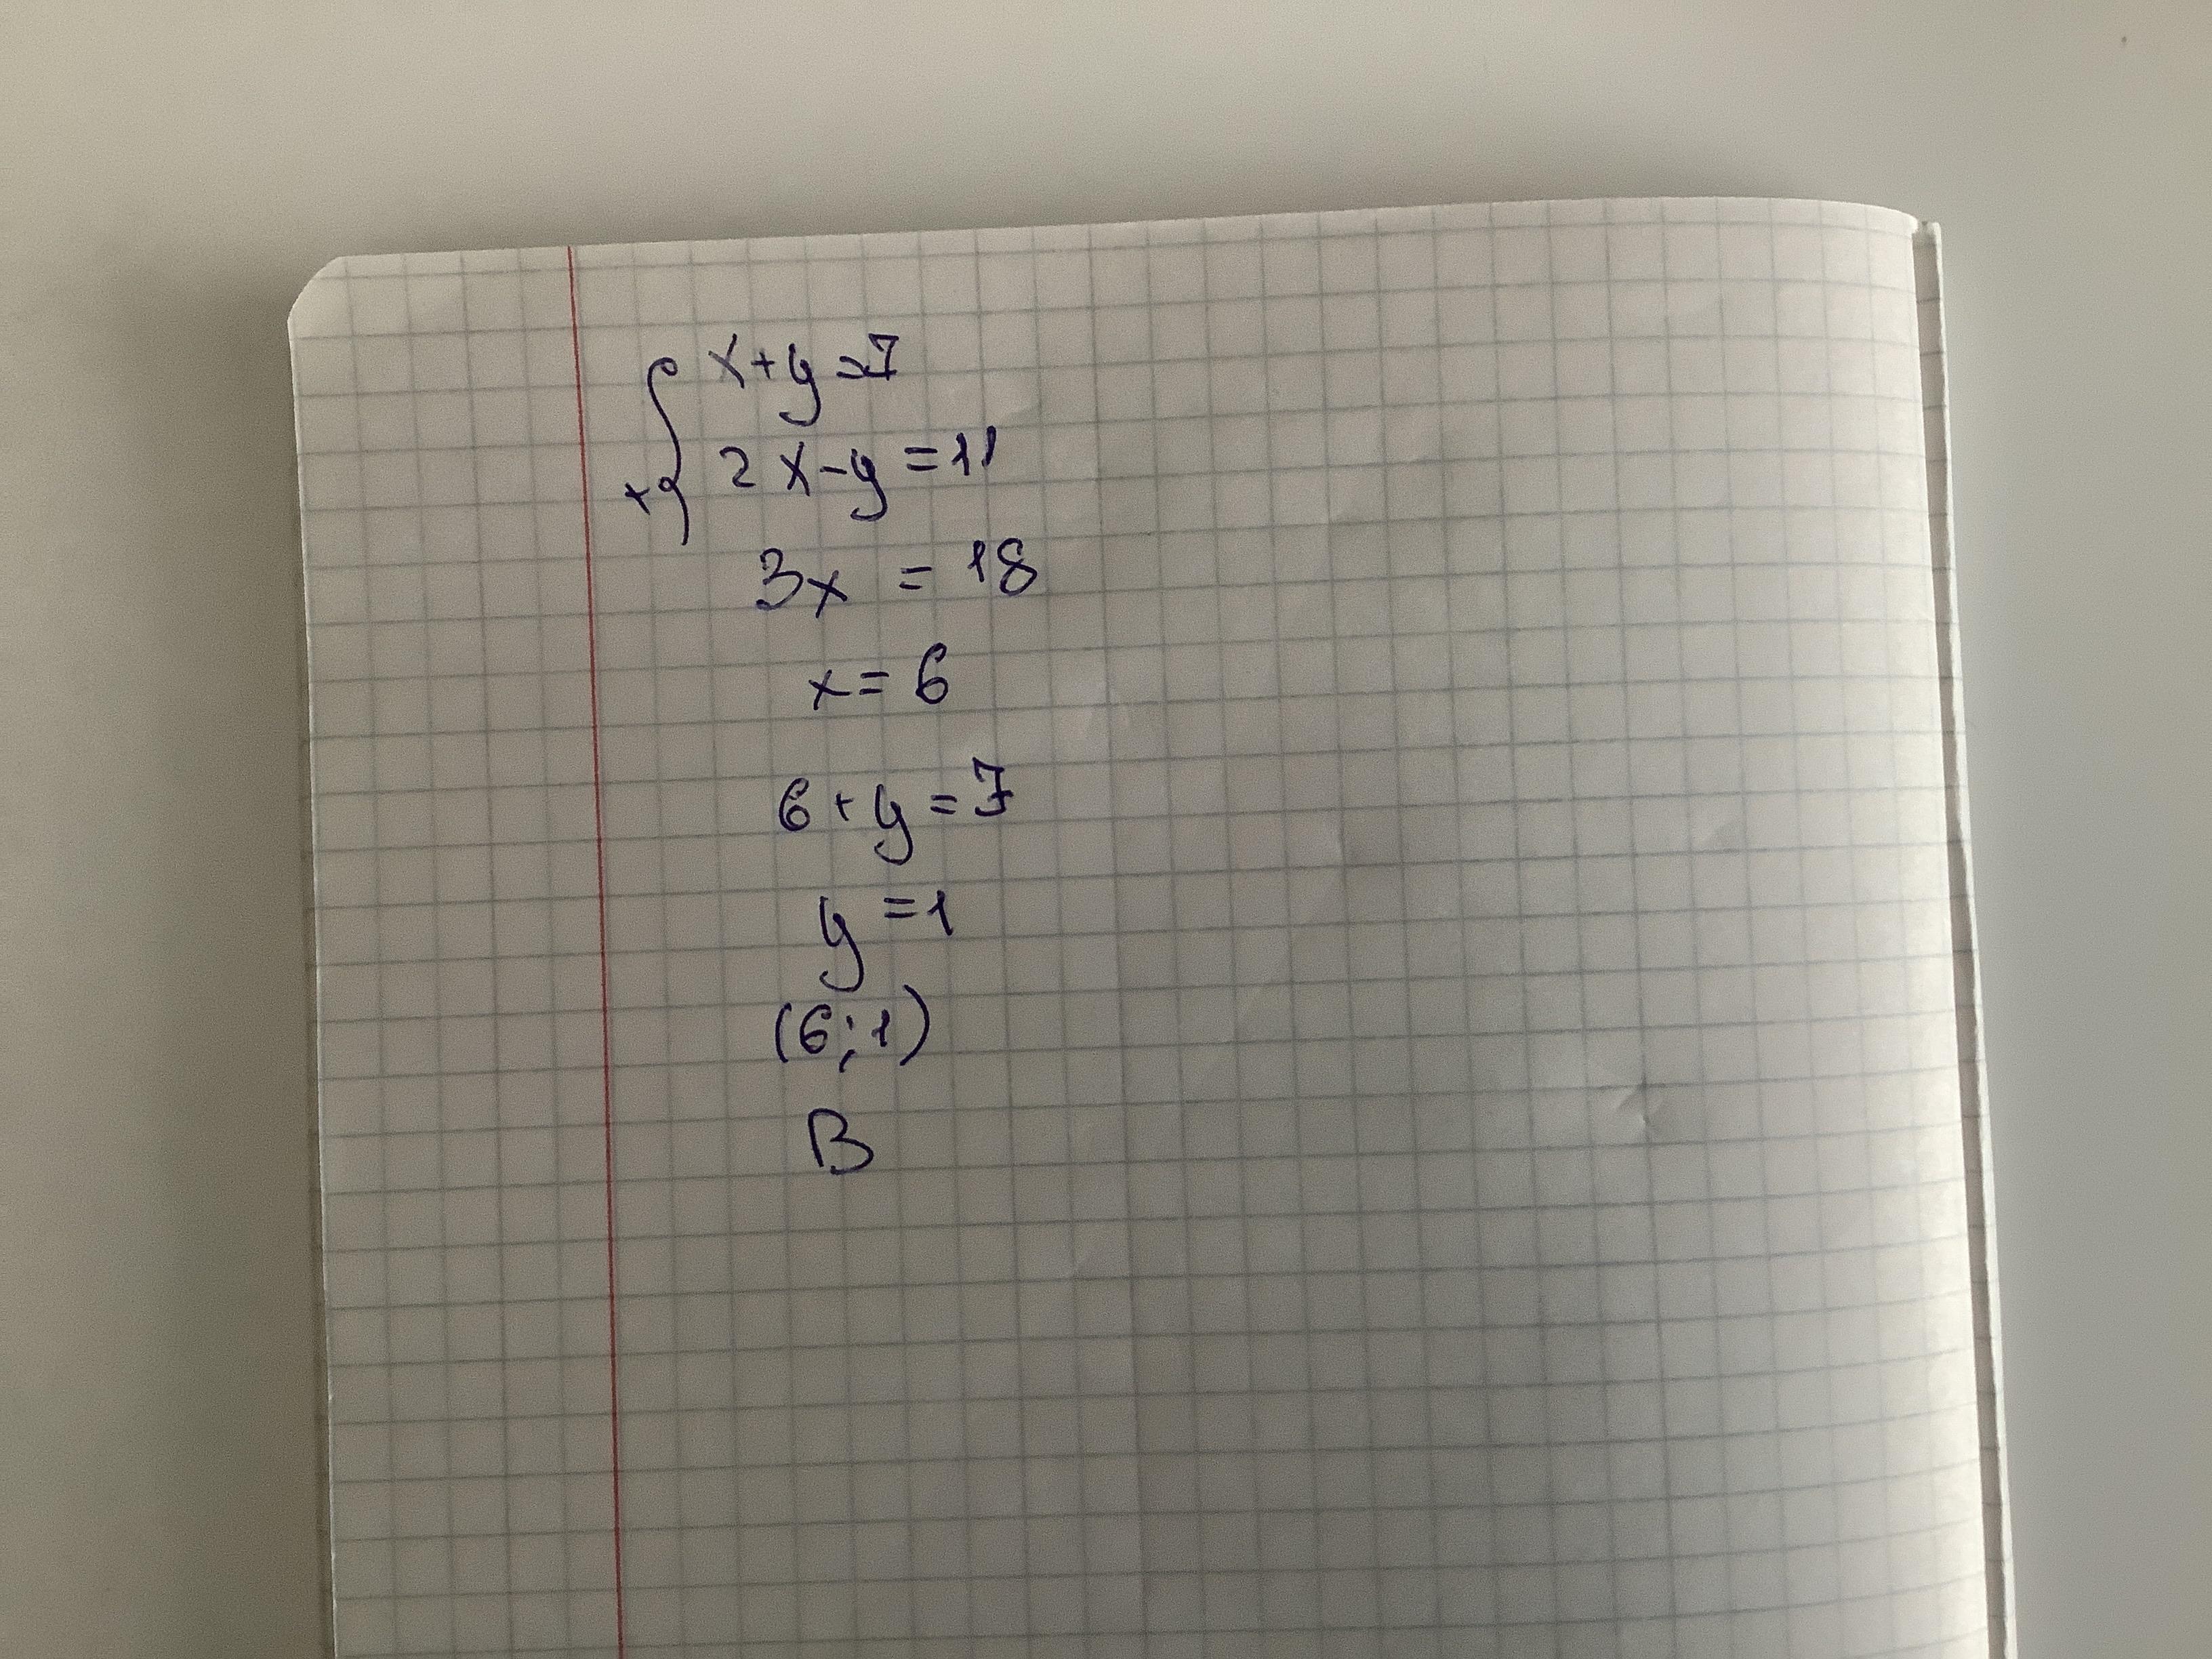 x+y=7
+{ 2x-y=11
3x = 18
x= 6
6+y=7
y=1
(6;1)
B